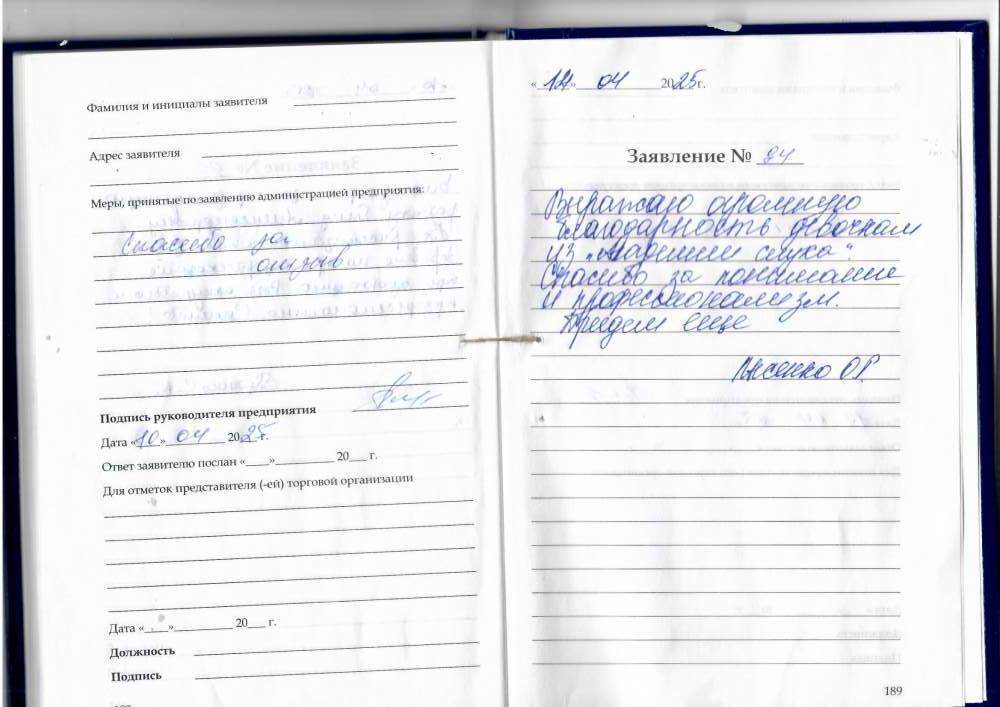 Фамилия и инициалы заявителя
Адрес заявителя
Меры, принятые по заявлению администрацией предприятия:
Спасибо за
отзыв
Подпись руководителя предприятия
Дата «10» 04 2025г.
Ответ заявителю послан «___»__________ 20___ г.
Для отметок представителя (-ей) торговой организации
Дата «____»__________ 20___ г.
Должность
Подпись
«12» 04 2025г.
Заявление № 94
Выражаю огромную
благодарность девочкам
из „Академии слуха“.
Спасибо за понимание
и професионализм.
Приедем еще
Лысенко О.Р.
189